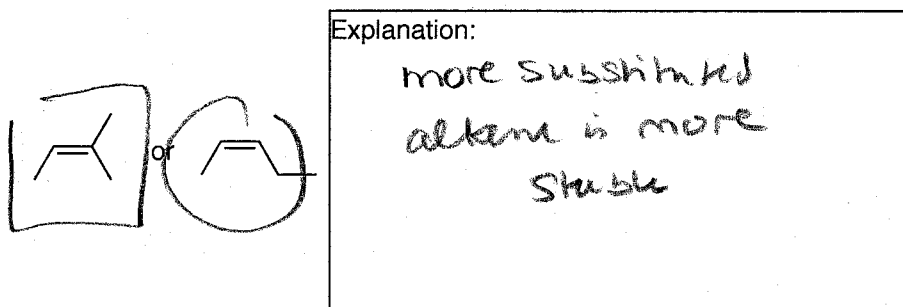 Explanation:
more substituted
alkene is more
stable
or